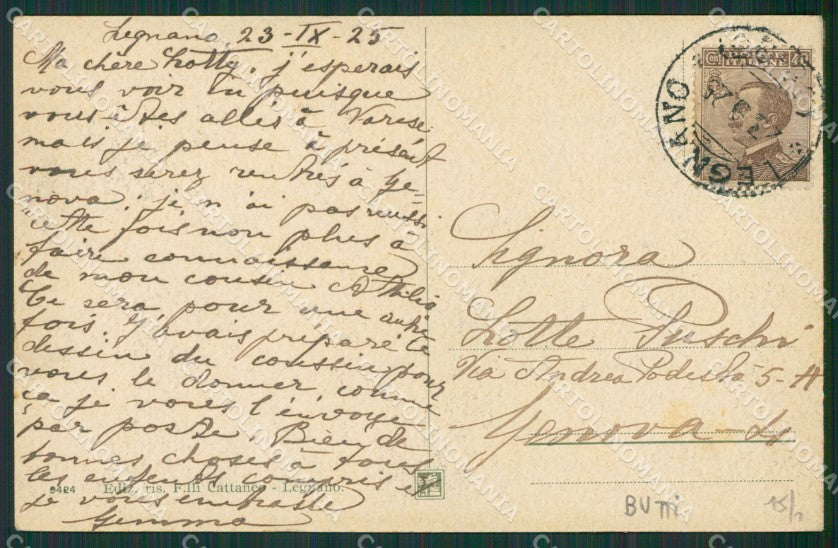 Legnano, 23-IX-25
Ma chère Lotty, j'esperais
vous voir ici puisque
vous êtes allés à Varese
mais je pense à présent
vous serez rentrés à Ge-
nova; je n'ai pas reussi
cette fois non plus à
faire connaissance
de mon cousin Attilio
Ce sera pour une autre
fois. J'avais preparé le
dessin du coussin pour
vous le donner comme
ça je vous l'envoye
par poste. Bien de
bonnes choses à tous
les enfants compris et
je vous embrasse
Gemma
9424 Ediz. ris. F.lli Cattaneo - Legnano.
LEGNANO
23.9.25
Signora
Lotte Puschi
Via Andrea Podestà 5-
Genova
BUTTI
15/
CARTOLINOMANIA